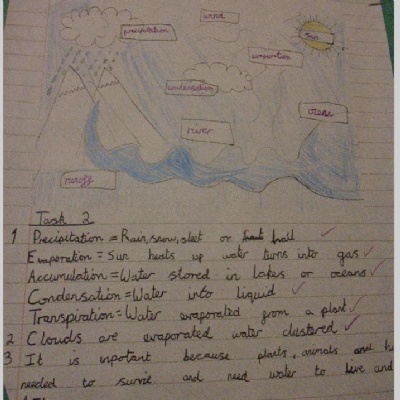 wind
precipitation
Sun
evaporation
condensation
ocean
river
runoff
Task 2
1 Precipitation = Rain, snow, sleet or hail
Evaporation = Sun heats up water turns into gas
Accumulation = Water stored in lakes or oceans
Condensation = Water into liquid
Transpiration = Water evaporated from a plant
2 Clouds are evaporated water clustered
3 It is inportant because plants, animals and
needed to and need water to live and